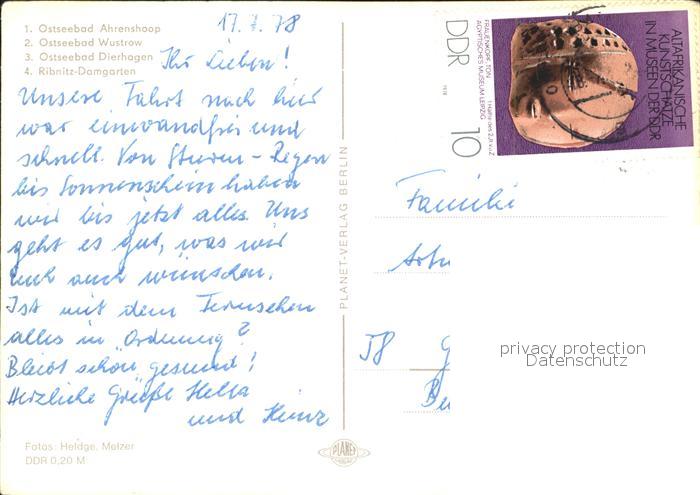 1. Ostseebad Ahrenshoop
2. Ostseebad Wustrow
3. Ostseebad Dierhagen
4. Ribnitz-Damgarten
17.7.78
Ihr Lieben!
Unsere Fahrt nach hier
war einwandfrei und
schnell. Von Sturm - Regen
bis Sonnenschein haben
wir bis jetzt alles. Uns
geht es gut, was wir
Euch auch wünschen.
Ist mit dem Fernsehen
alles in Ordnung?
Bleibt schön gesund!
Herzliche Grüße Hella
und Heinz
Fotos: Heldge, Melzer
DDR 0,20 M
PLANET-VERLAG BERLIN
PLANET
ALTAFRIKANISCHE
KUNSTSCHÄTZE
IN MUSEEN DER DDR
FRAUENKOPF, TON
ÄGYPTISCHES MUSEUM LEIPZIG
1978
DDR 10
Familie
58
privacy protection
Datenschutz